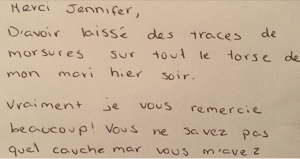 Merci Jennifer,
D'avoir laissé des traces de
morsures sur tout le torse de
mon mari hier soir.
Vraiment je vous remercie
beaucoup! Vous ne savez pas
quel cauche mar vous m'avez